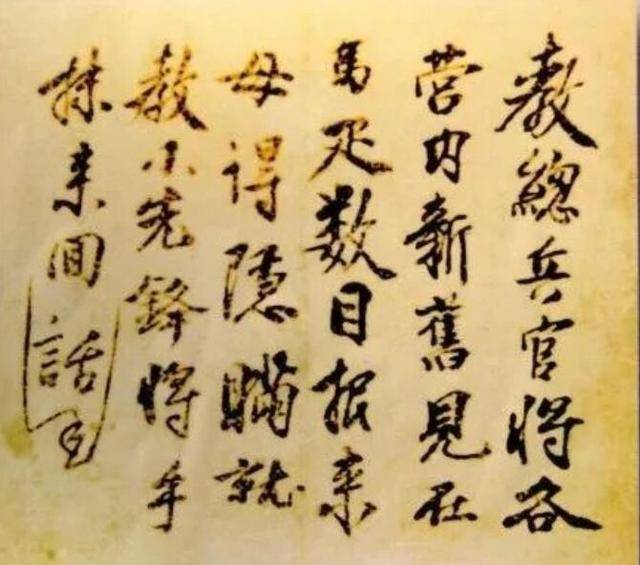 教總兵官將各
營内新舊見在
馬疋數目报来
毋得隱瞞就
教小先鋒將手
抹来回話